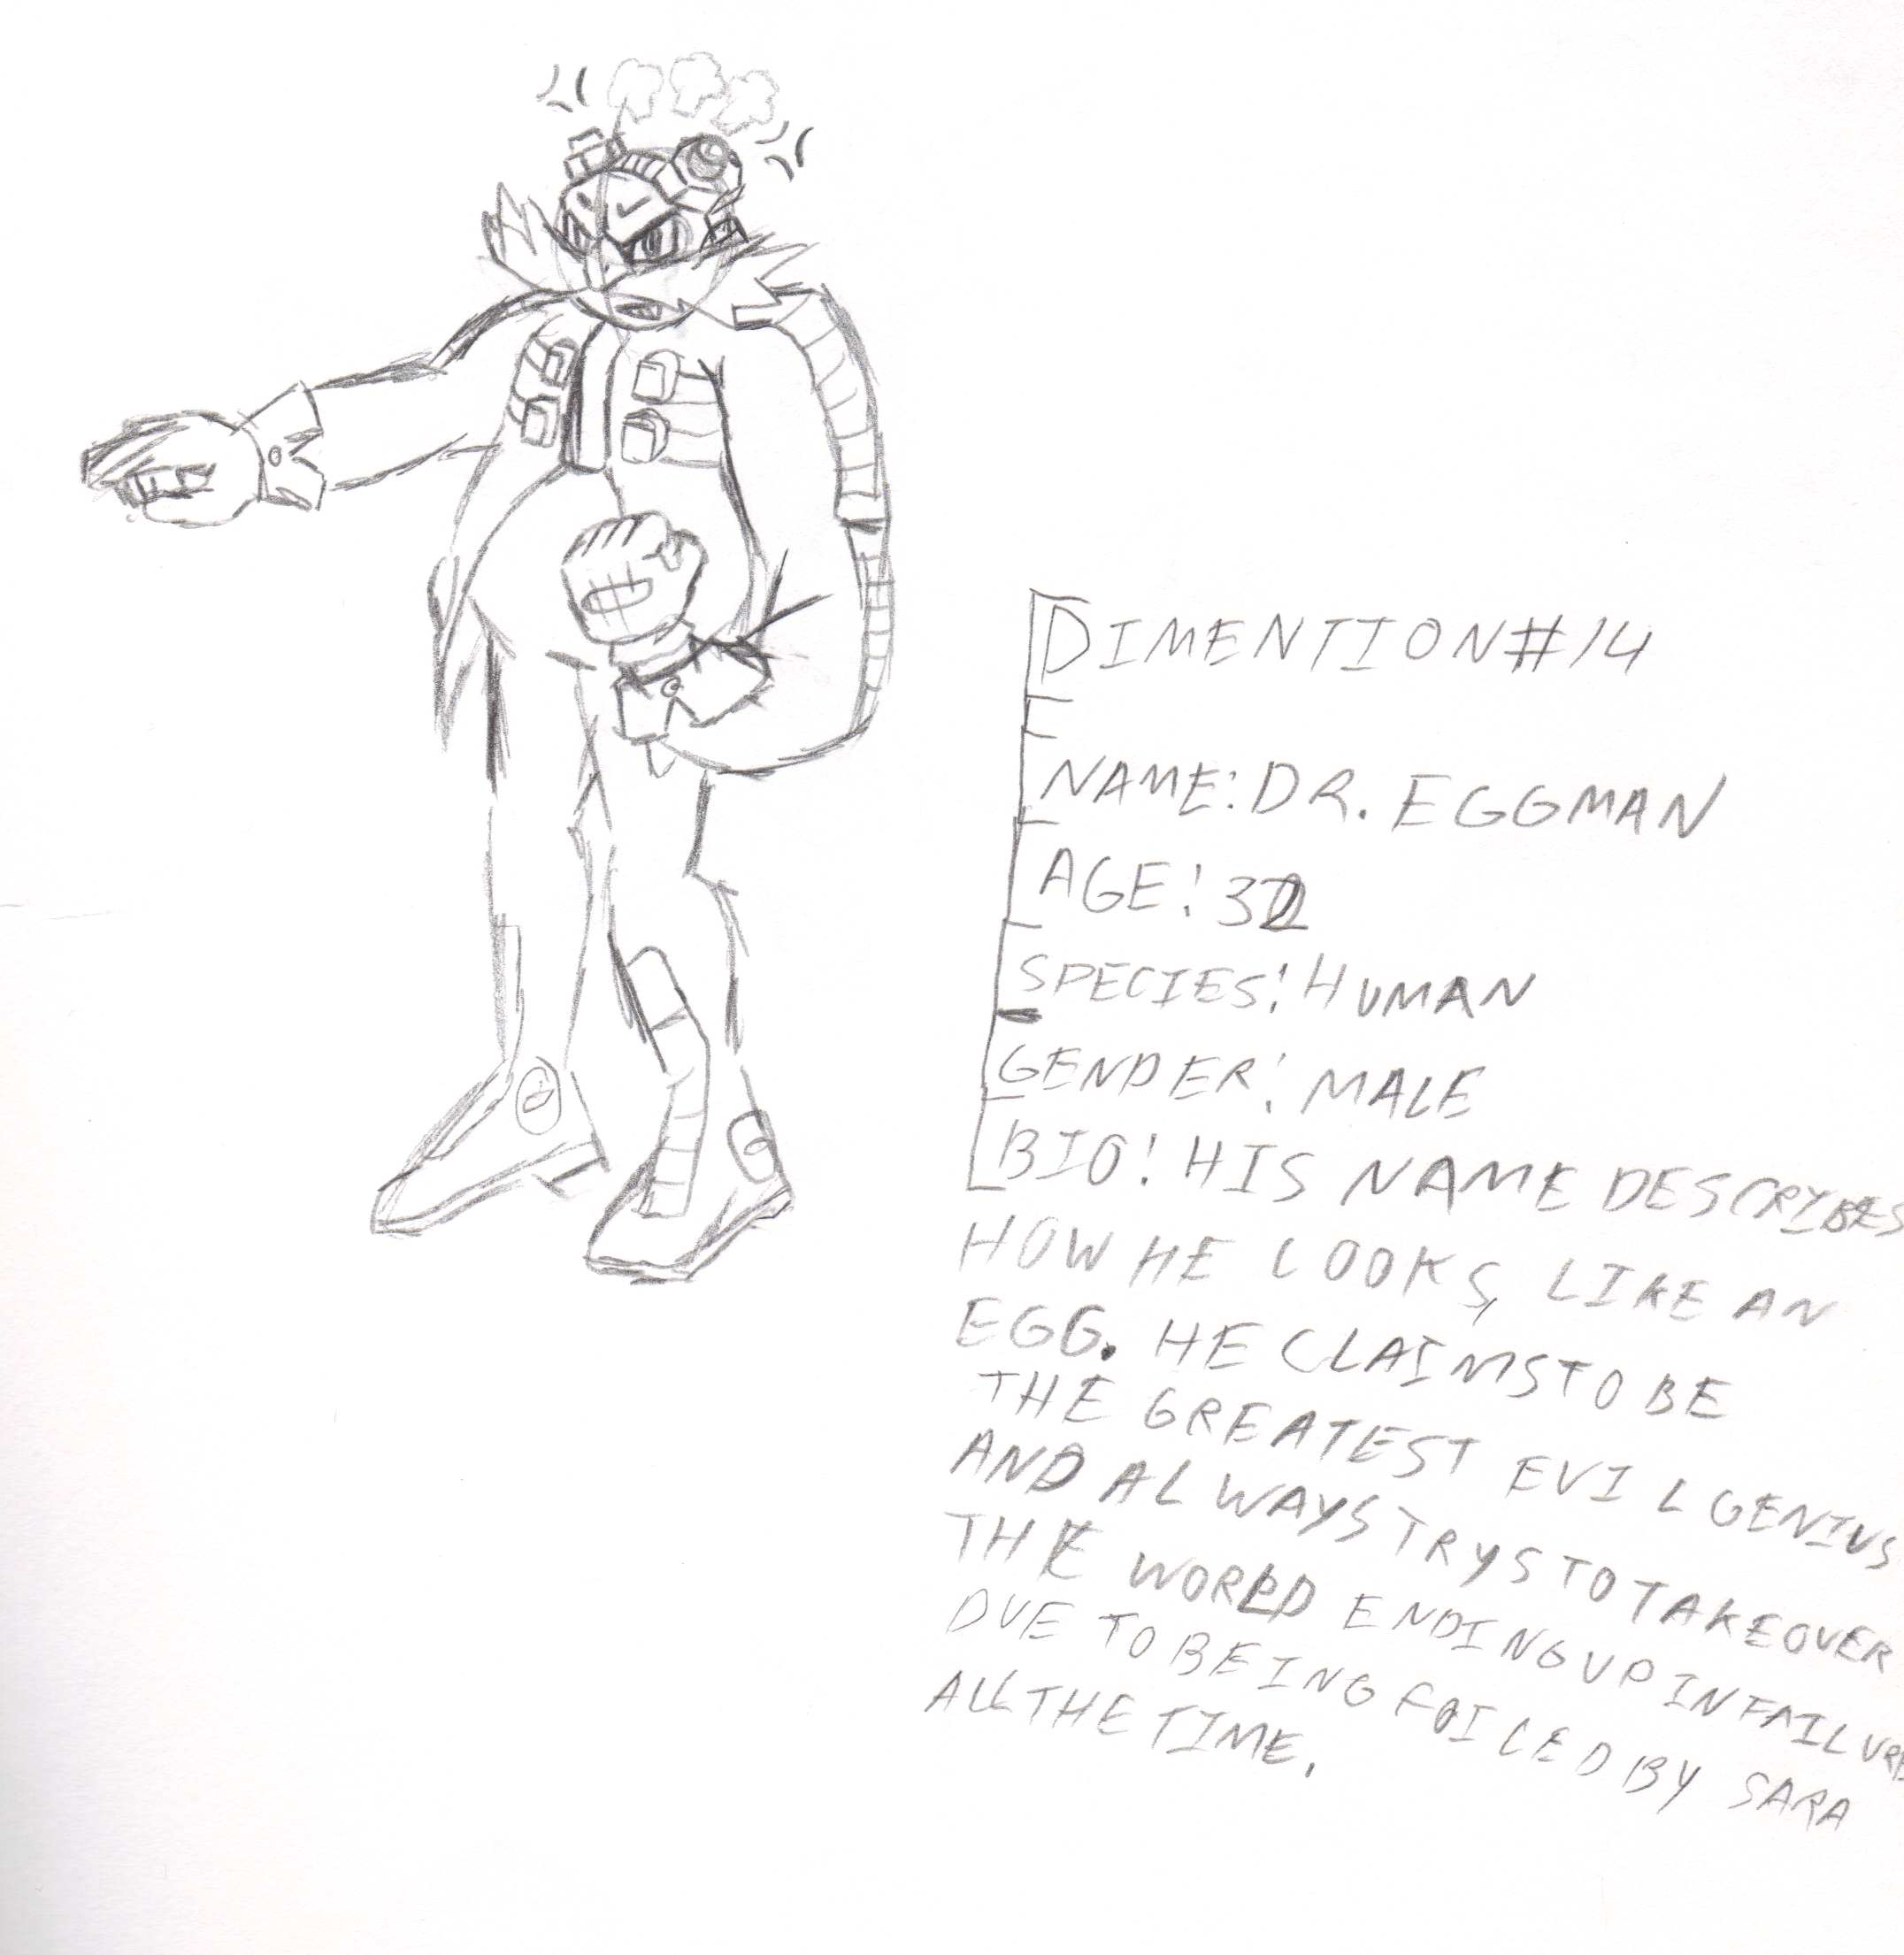 DIMENTION#14
NAME: DR. EGGMAN
AGE: 32
SPECIES: HUMAN
GENDER: MALE
BIO: HIS NAME DESCRYBES
HOW HE LOOKS, LIKE AN
EGG. HE CLAIMS TO BE
THE GREATEST EVIL GENIUS
AND ALWAYS TRYS TO TAKEOVER
THE WORLD ENDING UP IN FAILURE
DUE TO BEING FOILED BY SARA
ALL THE TIME.